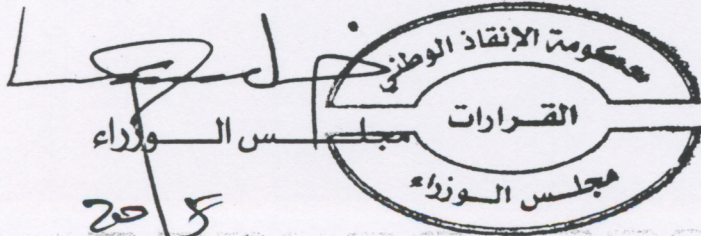 حكومة الإنقاذ الوطني
القرارات
مجلس الوزراء
مجلس الوزراء